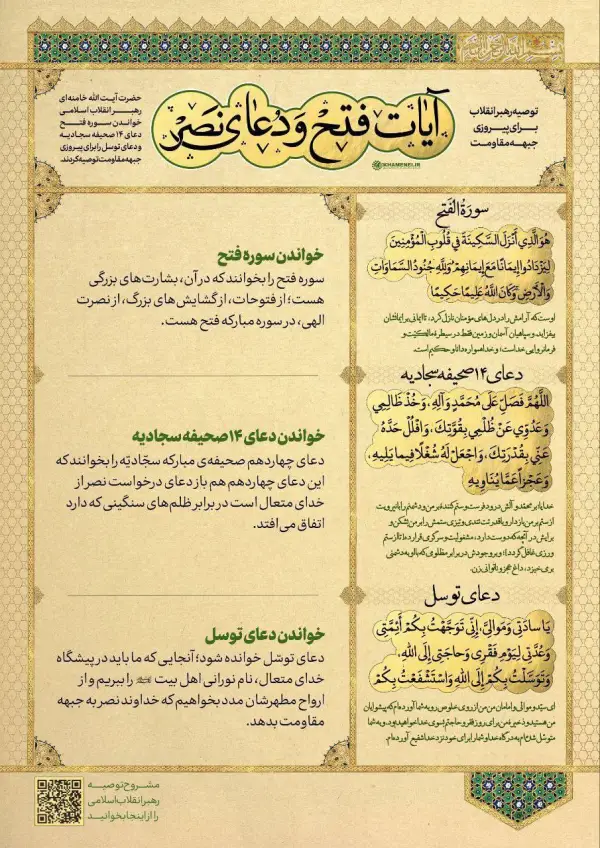 توصیه رهبر انقلاب
برای پیروزی
جبهه مقاومت
آیات فتح و دعای نصر
KHAMENEI.IR
حضرت آیت الله خامنه‌ای
رهبر انقلاب اسلامی
خواندن سوره فتح
دعای ۱۴ صحیفه سجادیه
و دعای توسل را برای پیروزی
جبهه مقاومت توصیه کردند.
سورة الفَتح
هُوَ الَّذِي أَنْزَلَ السَّكِينَةَ فِي قُلُوبِ الْمُؤْمِنِينَ
لِيَزْدَادُوا إِيمَانًا مَعَ إِيمَانِهِمْ وَلِلَّهِ جُنُودُ السَّمَاوَاتِ
وَالْأَرْضِ وَكَانَ اللَّهُ عَلِيمًا حَكِيمًا
اوست که آرامش را در دل‌های مؤمنان نازل کرد، تا ایمانی بر ایمانشان
بیفزاید و سپاهیان آسمان و زمین فقط در سیطره مالکیّت و
فرمانروایی خداست؛ و خدا همواره دانا و حکیم است.
خواندن سوره فتح
سوره فتح را بخوانند که در آن، بشارت‌های بزرگی
هست؛ از فتوحات، از گشایش های بزرگ، از نصرت
الهی، در سوره مبارکه فتح هست.
دعای ۱۴ صحیفه سجادیه
اللَّهُمَّ فَصَلِّ عَلَى مُحَمَّدٍ وَآلِهِ، وَخُذْ ظَالِمِي
وَعَدُوِّي عَنْ ظُلْمِي بِقُوَّتِكَ، وَافْلُلْ حَدَّهُ
عَنِّي بِقُدْرَتِكَ، وَاجْعَلْ لَهُ شُغْلًا فِيمَا يَلِيهِ،
وَعَجْزاً عَمَّا يُنَاوِيهِ
خدایا؛ بر محمد و آلش درود فرست و ستم کننده بر من و دشمنم را با نیرویت
از ستم بر من بازدار و با قدرتت تندی و تیزی ستمش را بر من بشکن و
برایش در آنچه که دوست دارد، مشغولیت و سرگرمی قرار ده
برمی‌خیزد، داغ عجز و ناتوانی زن.
خواندن دعای ۱۴ صحیفه سجادیه
دعای چهاردهم صحیفه‌ی مبارکه سجّادیّه را بخوانند که
این دعای چهاردهم هم باز دعای درخواست نصر از
خدای متعال است در برابر ظلم‌های سنگینی که دارد
اتفاق می‌افتد.
دعای توسل
یَا سَادَتِي وَمَوَالِيَّ، إِنِّي تَوَجَّهْتُ بِكُمْ أَئِمَّتِي
وَعُدَّتِي لِيَوْمِ فَقْرِي وَحَاجَتِي إِلَى اللهِ،
وَتَوَسَّلْتُ بِكُمْ إِلَى اللهِ وَاسْتَشْفَعْتُ بِكُمْ
ای سید و موالی و امامان من من از روی خلوص رو به شما آورده‌ام که پیشوایان
من هستید و ذخیره من برای روز فقر و حاجتم بسوی خدا خواهید بود و به شما
متوسل شده‌ام به درگاه خدا و شما را برای خود نزد خدا شفیع آورده‌ام.
خواندن دعای توسل
دعای توسّل خوانده شود؛ آنجایی که ما باید در پیشگاه
خدای متعال، نام نورانی اهل بیت را ببریم و از
ارواح مطهرشان مدد بخواهیم که خداوند نصر به جبهه
مقاومت بدهد.
مشروح توصیه
رهبر انقلاب اسلامی
را از اینجا بخوانید